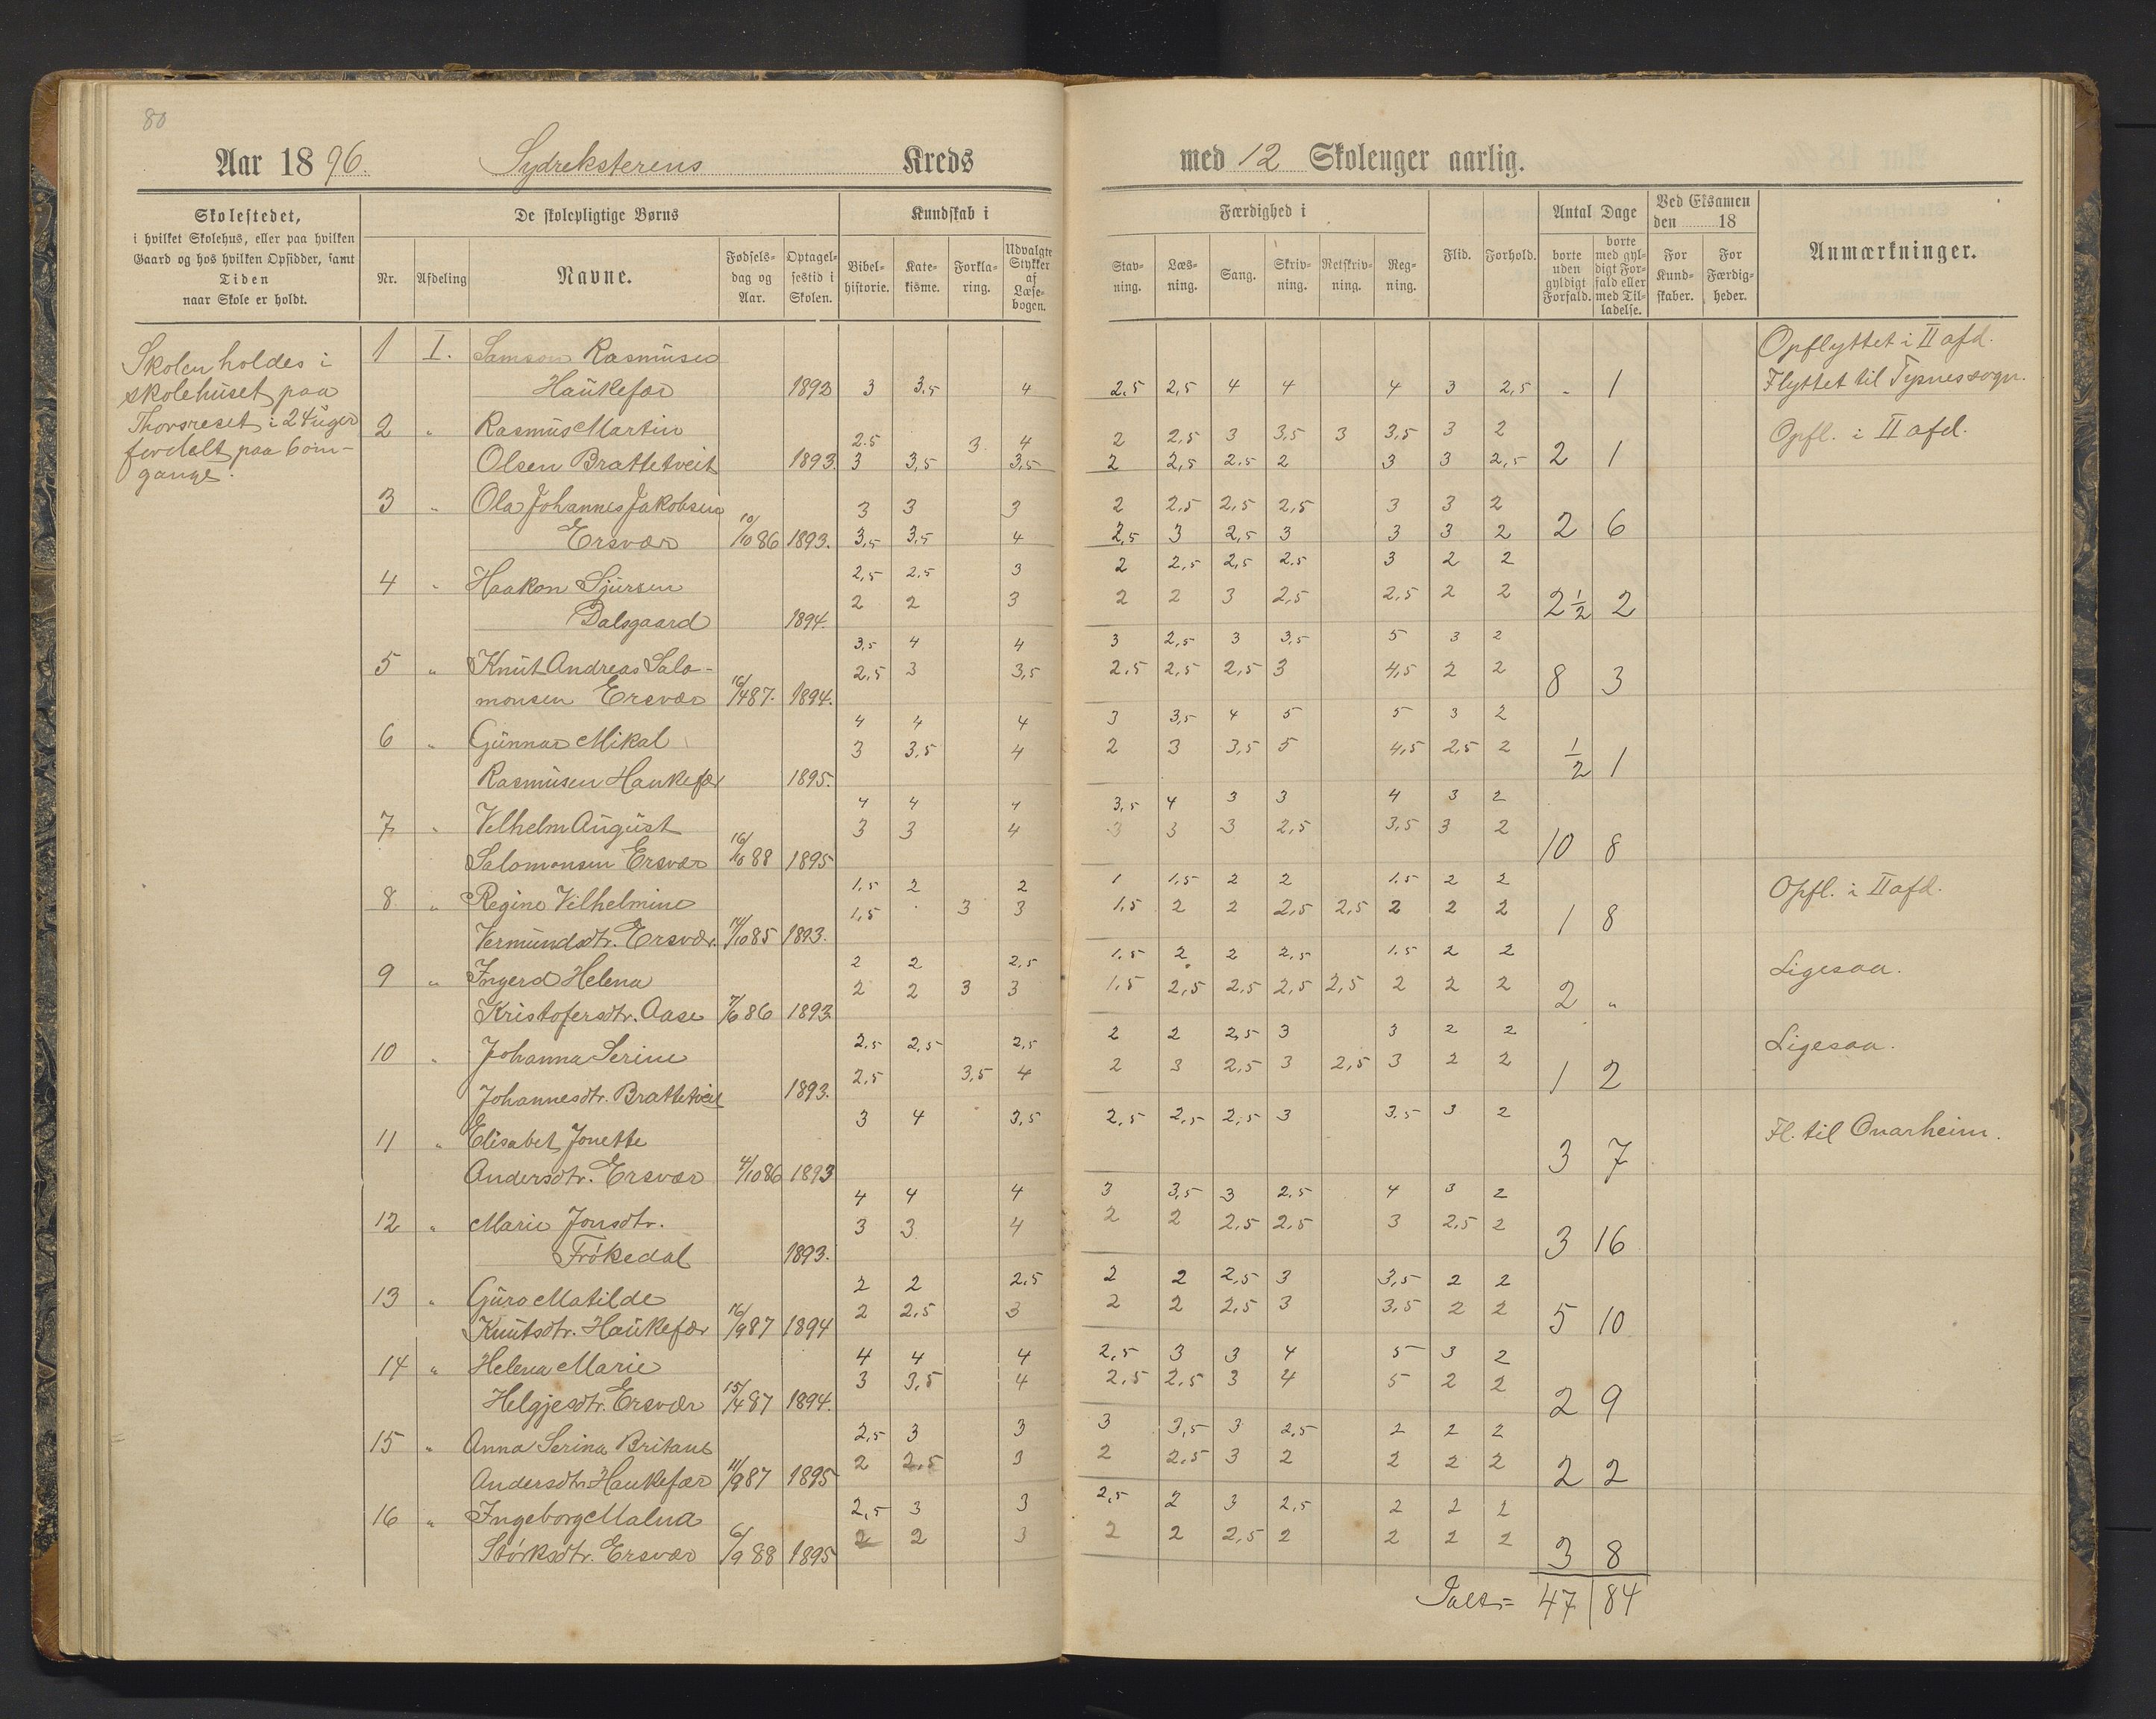 80
Aar 1896. Sydreksterens Kreds
med 12 Skoleuger aarlig.
Skolestedet,
i hvilket Skolehus, eller paa hvilken
Gaard og hos hvilken Opsidder, samt
Tiden
naar Skole er holdt.
De skolepligtige Børns
Nr. Afdeling Navne. Fødsels-dag og Aar. Optagel-sestid i Skolen.
Kundskab i
Bibel-historie. Kate-kisme. Forkla-ring. Udvalgte Stykker af Læse-bogen.
Færdighed i
Stav-ning. Læs-ning. Sang. Skriv-ning. Retskriv-ning. Reg-ning.
Flid. Forhold.
Antal Dage
borte uden gyldigt Forfald. borte med gyl-digt For-fald eller med Til-ladelse.
Ved Eksamen den 18
For Kund-skaber. For Færdig-heder.
Anmærkninger.
Skolen holdes i
skolehuset paa
Thorsreset i 24 uger
fordelt paa 6 om-
gange.
1 I. Samson Rasmusen Opflyttet i II afd.
Haukefær 1893 3 3,5 4 2,5 2,5 4 4 4 3 2,5 - 1 Flyttet til Tysnes sogn.
2 " Rasmus Martin 2.5 3 4 2 2,5 3 3,5 3 3,5 3 2 Opfl. i II afd.
Olsen Brattetveit 1893. 3 3,5 3,5 2 2,5 2.5 2 3 3 2,5 2 1
3 " Ola Johannes Jakobsen 3 3 3 2 2,5 2,5 2,5 3 3 2
Ersvær 10/10 86 1893. 3,5 3,5 4 2,5 3 2,5 3 3 3 2 2 6
2,5 2,5 3 2 2,5 2,5 2.5 3 2 2
4 " Haakon Sjursen 2 2 3 2 2 3 2,5 2,5 2 2 2 1/2 2
Dalsgaard 1894.
3,5 4 4 3 2,5 3 3,5 5 3 2
5 " Knut Andreas Salo- 2,5 3 3,5 2.5 2,5 2,5 3 4,5 2 2 8 3
monsen Ersvær 16/4 87. 1894.
4 4 4 3 3,5 4 5 5 3 2
6 " Gunnar Mikal 3 3,5 4 2 3 3,5 5 4,5 2,5 2 1/2 1
Rasmusen Haukefær 1895.
4 4 4 3,5 4 3 3 4 3 2
7 " Vilhelm August 3 3 4 3 3 3 2,5 3,5 3 2 10 8
Salomonsen Ersvær 1895
1,5 2 2 1 1,5 2 2 1.5 2 2 Opfl. i II afd.
8 " Regine Vilhelmine 1,5 3 3 1,5 2 2 2,5 2,5 2 2 2 1 8
Vermundsdtr. Ersvær. 14/10 85 1893.
2 2 2,5 1,5 2 2 2,5 1.5 2 2 Ligesaa.
9 " Ingerd Helena 2 2 3 3 1,5 2,5 2,5 2,5 2,5 2 2 2 2 "
Kristofersdtr. Aase 7/6 86 1893
2,5 2,5 2,5 2 2 2,5 3 3 2 2 Ligesaa.
10 " Johanna Serine 2,5 3,5 4 2 3 2,5 3 2,5 3 2 2 1 2
Johannesdtr. Brattetveit 1893.
3 4 3,5 2,5 2,5 2,5 3 3.5 3 2 Fl. til Onarheim.
11 " Elisabet Jonette 3 7
Andersdtr. Ersvær 4/10 86 1893
4 4 4 3 3,5 3 2.5 4 3 2
12 " Marie Jonsdtr. 3 3 4 2 2 2,5 2.5 3 2,5 2 3 16
Frökedal 1893.
2 2 2,5 2 2 2,5 3 3,5 2 2
13 " Guro Matilde 2 2,5 3 2 2 2,5 3 3,5 2 2 5 10
Knutsdtr. Haukefær 16/9 87 1894
4 4 4 2,5 3 3 4 5 3 2
14 " Helena Marie 3 3,5 4 2,5 2,5 3 4 5 2 2 2 9
Helgjesdtr. Ersvær 15/4 87 1894.
2,5 3 3 3 3,5 3 2,5 2 2 2
15 " Anna Serina Britane 2 2,5 3 2 2,5 3 2 2 2 2 2 2
Andersdtr. Haukefær 11/9 87 1895
2,5 3 3 2,5 2 3 2,5 2 2 2
16 " Ingeborg Malna 2 2 3 2 2 2,5 2 2 2 2 3 8
Störksdtr. Ersvær 6/9 88 1895
Ialt = 47 84